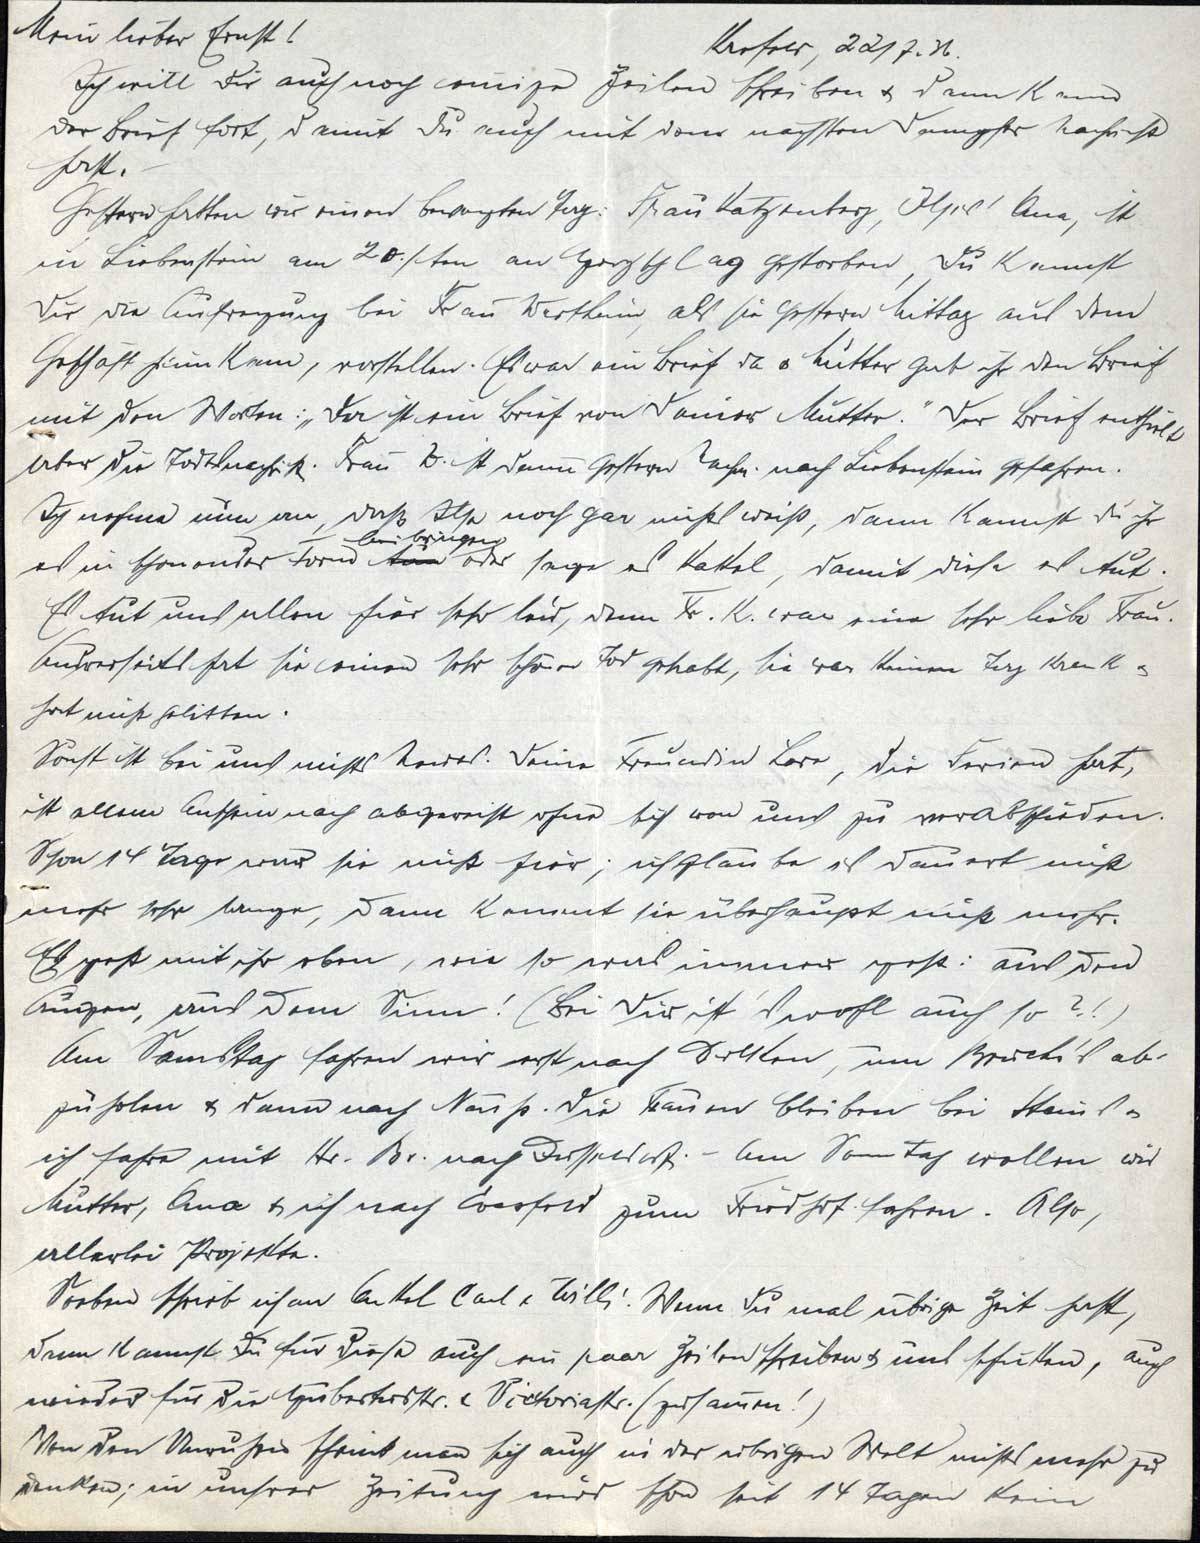 Mein lieber Ernst!
Krefeld, 22/7.36.
Ich will Dir auch noch einige Zeilen schreiben & dann kann
der Brief fort, damit Du auch mit dem nächsten Dampfer Nachricht
hast. –
Gestern hatten wir einen bewegten Tag: Frau Katzenberg, Ilses' Oma, ist
in Liebenstein am 20.sten an Herzschlag gestorben, Du kannst
Dir die Aufregung bei Frau Wertheim, als sie gestern Mittag aus dem
Geschäft heim kam, vorstellen. Es war ein Brief da & Mutter gab ihr den Brief
mit den Worten: „Da ist ein Brief von Deiner Mutter." Der Brief enthielt
aber die Todesnachricht. Frau W. ist dann gestern Nachm. nach Liebenstein gefahren.
Ich nehme nun an, daß Ilse noch gar nichts weiß, dann kannst du ihr
es in schonender Form beibringen oder sage es Kattel, damit diese es tut.
Es tut uns allen hier sehr leid, denn Fr. K. war eine sehr liebe Frau.
Andererseits hat sie einen sehr schönen Tod gehabt, sie war keinen Tag krank &
hat nicht gelitten.
Sonst ist bei uns nichts Neues. Deine Freundin Lore, die Ferien hat,
ist allem Anschein nach abgereist ohne sich von uns zu verabschieden.
Schon 14 Tage war sie nicht hier; ich glaube es dauert nicht
mehr sehr lange, dann kommt sie überhaupt nicht mehr.
Es geht mit ihr eben, wie so was immer geht: aus den
Augen, aus dem Sinn! (Bei Dir ist's wohl auch so?!)
Am Samstag fahren wir erst nach Dülken, um Bruch's ab-
zuholen & dann nach Neuss. Die Frauen bleiben bei Steins &
ich fahre mit Hr. Br. nach Düsseldorf. – Am Sonntag wollen wir
Mutter, Oma & ich nach Coesfeld zum Friedhof fahren. Also,
allerlei Projekte.
Soeben schrieb ich an Onkel Carl & Willi. Wenn Du mal übrige Zeit hast,
dann kannst Du für diese auch ein paar Zeilen schreiben & uns schicken, auch
wieder für die Hubertusstr. & Victoriastr. (zusammen!)
Von den Unruhen scheint man sich auch in der übrigen Welt nichts mehr zu
denken; in unserer Zeitung wird schon seit 14 Tagen kein